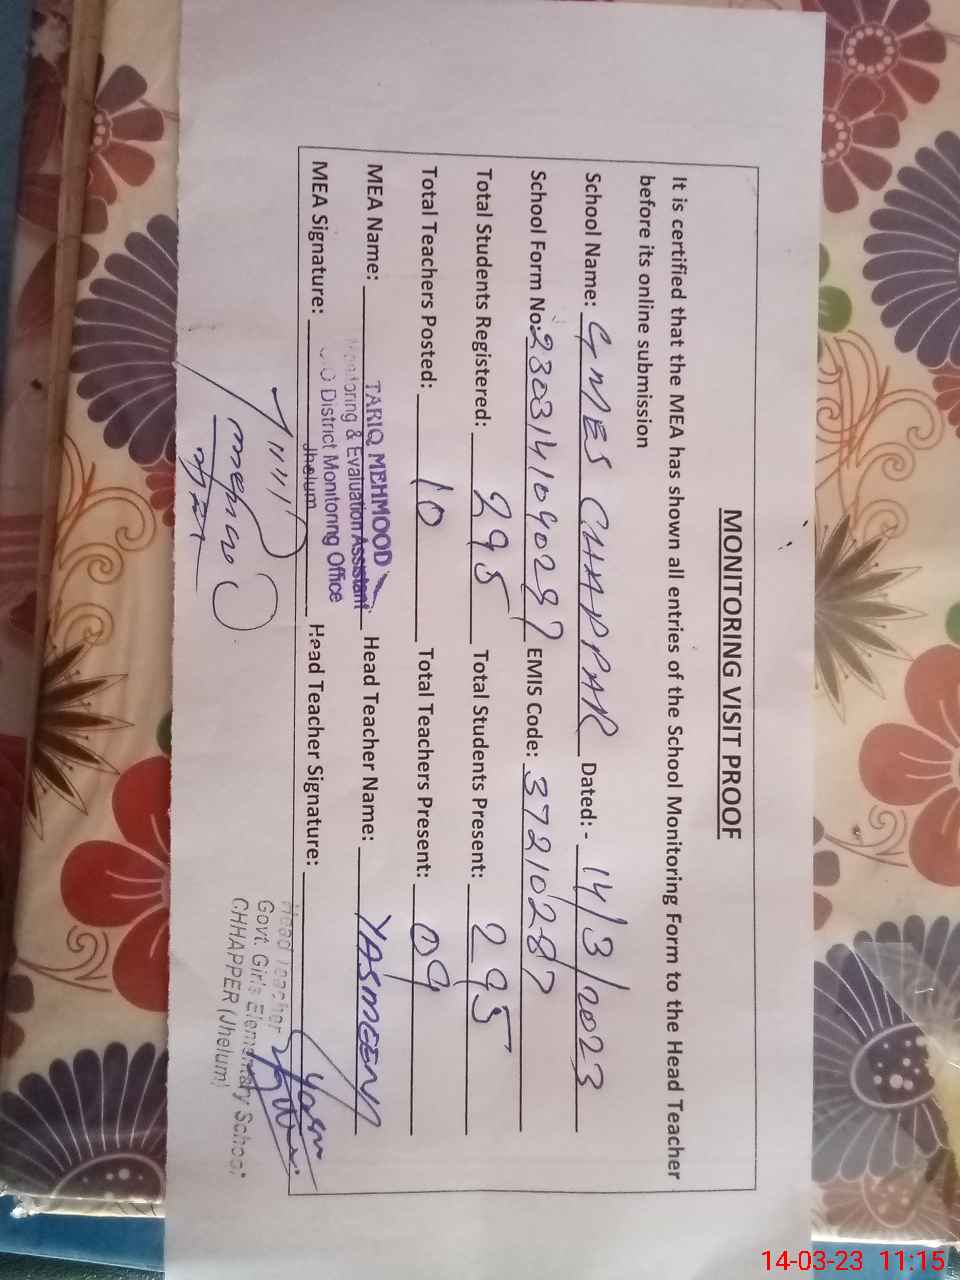 MONITORING VISIT PROOF
It is certified that the MEA has shown all entries of the School Monitoring Form to the Head Teacher
before its online submission
School Name: GMES CHAPPAR Dated:- 14/3/2023
School Form No: EMIS Code: 37210287
Total Students Registered: 295 Total Students Present: 295
Total Teachers Posted: 10 Total Teachers Present: 09
MEA Name: TARIQ MEHMOOD Head Teacher Name: YASMEEN
Monitoring & Evaluation Assistant
District Monitoring Office
Jhelum
MEA Signature: Head Teacher Signature:
Head Teacher
Govt. Girls Elementary School
CHHAPPER (Jhelum)
14-03-23 11:15